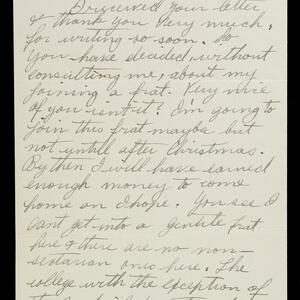 I received your letter
& thank you very much,
for writing so soon. So
you have decided, without
consulting me, about my
joining a frat. Very nice
of you isn't it? I'm going to
join this frat maybe but
not untill after Christmas.
By then I will have earned
enough money to come
home on I hope. You see I
cant get into a gentile frat
here & there are no non-
sectarian ones here. The
college with the exception of